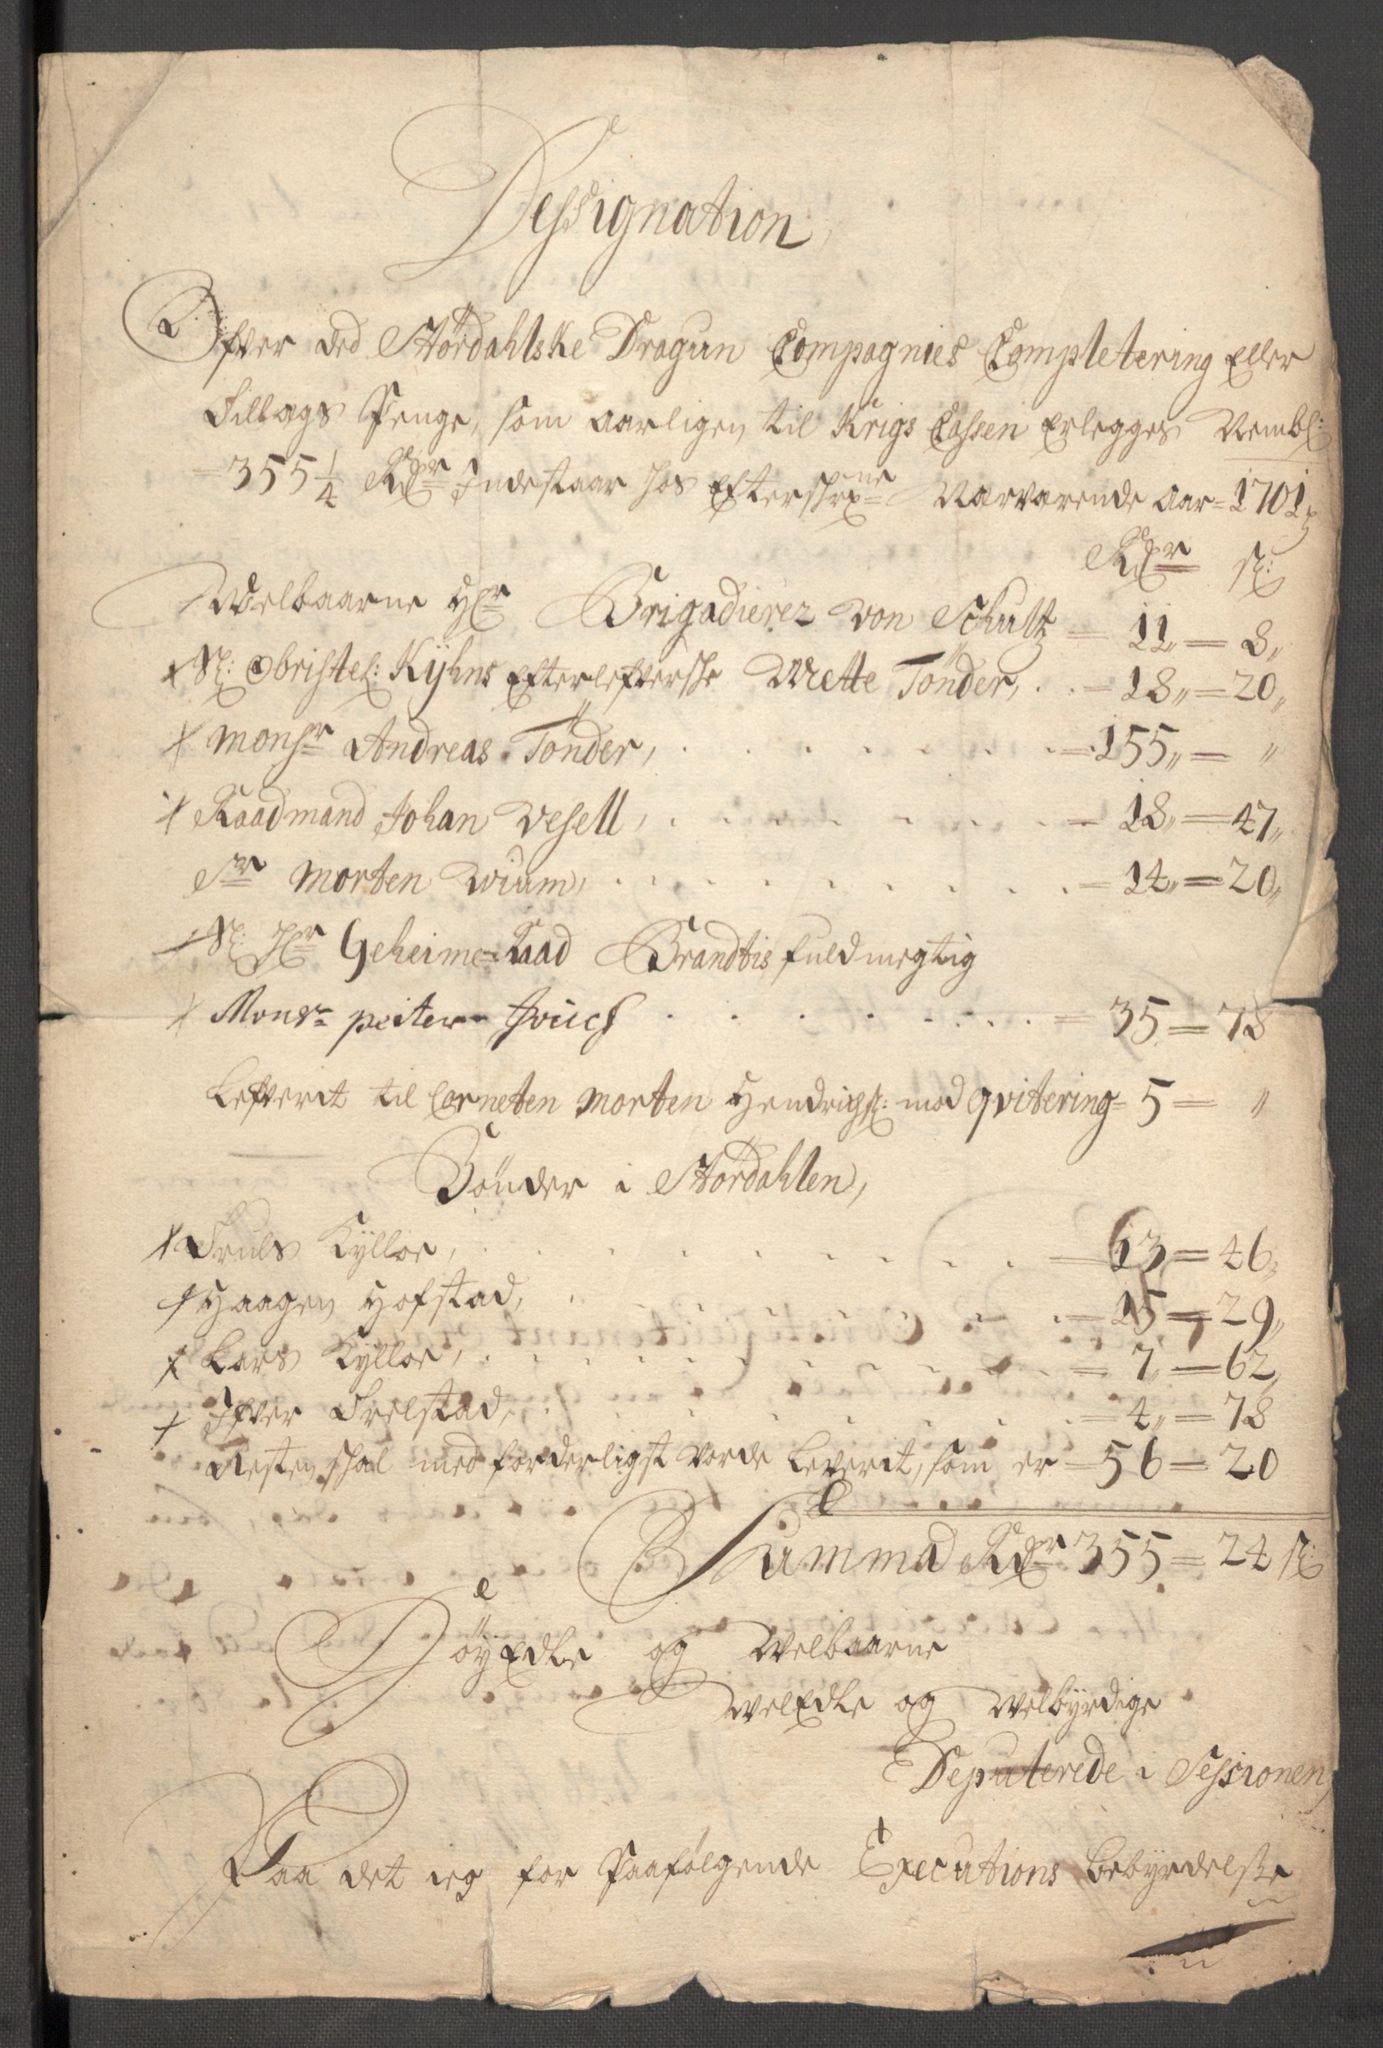 Dessignation,
Ofver ded Størdahlske Dragun Compagnies Completering Eller
Tillags Penge, som aarligen til Krigs Cassen Erlegges Nembl:
355¼ Rdr Indestaar hos Efterschrne Nærværende Aar 1701,
Rdr s:
Welbaarne Hr Brigadierer von Schultz = 11 = 8,,
Sl: Obristel: Kÿhns Efterlefversche Mette Tönder, = 18,, = 20,,
Monsr Andreas Tönder, = 155,, = ,,
Raadmand Johan Vesell, = 18,, = 47,,
Sr Morten Wium, = 14,, = 20,,
Sl: Hr Geheime Raad Brandtis fuldmegtig
Monsr peiter = 35 = 78
Lefverit til Corneten Morten Hendrichs: mod qvitering = 5 = ,,
Bönder i Størdahlen,
Truls Kÿlloe, = 13 = 46,,
Haagen Hofstad, = 15 = 29,,
Lars Kÿlloe, = 7,, = 62,,
Ifver Trelstad, = 4,, = 78
Resten schal med forderligst vorde Leverit, som er = 56 = 20
Summa Rdr 355 = 24 s:
HöyEdle og Welbaarne
WelEdle og Welbÿrdige
Deputerede i Sessionen
Paa det ieg for Paafølgende Executions bebÿrdelse